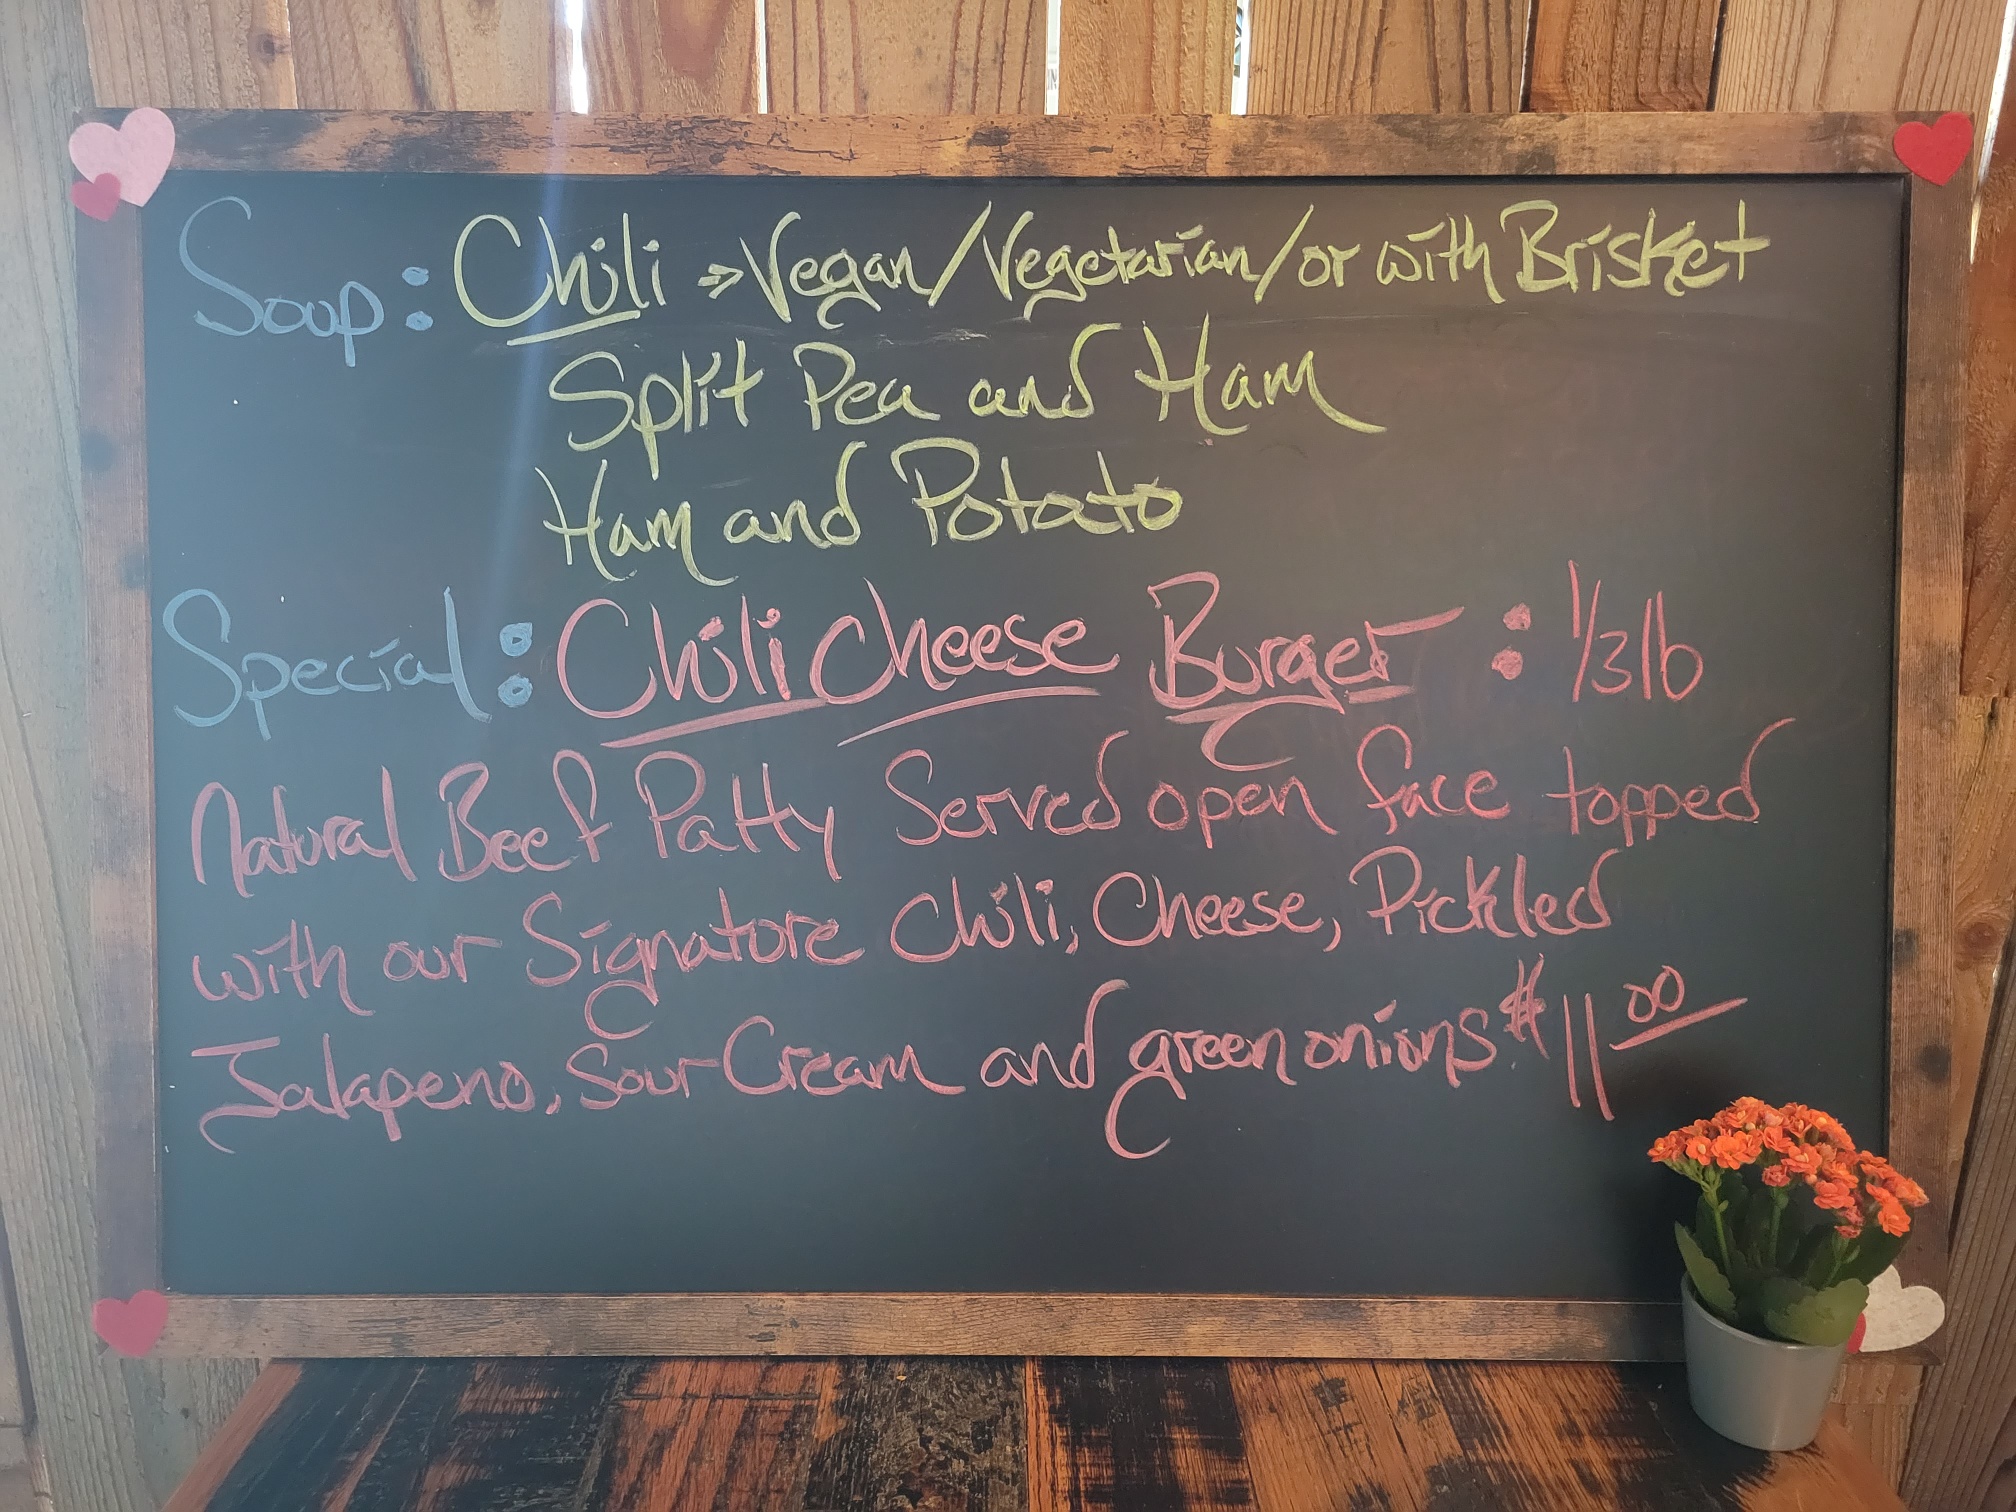 Soup: Chili → Vegan/Vegetarian/or with Brisket
Split Pea and Ham
Ham and Potato
Special: Chili Cheese Burger: 1/3 lb
Natural Beef Patty Served open face topped
with our Signature Chili, Cheese, Pickled
Jalapeno, Sour Cream and green onions $11.00